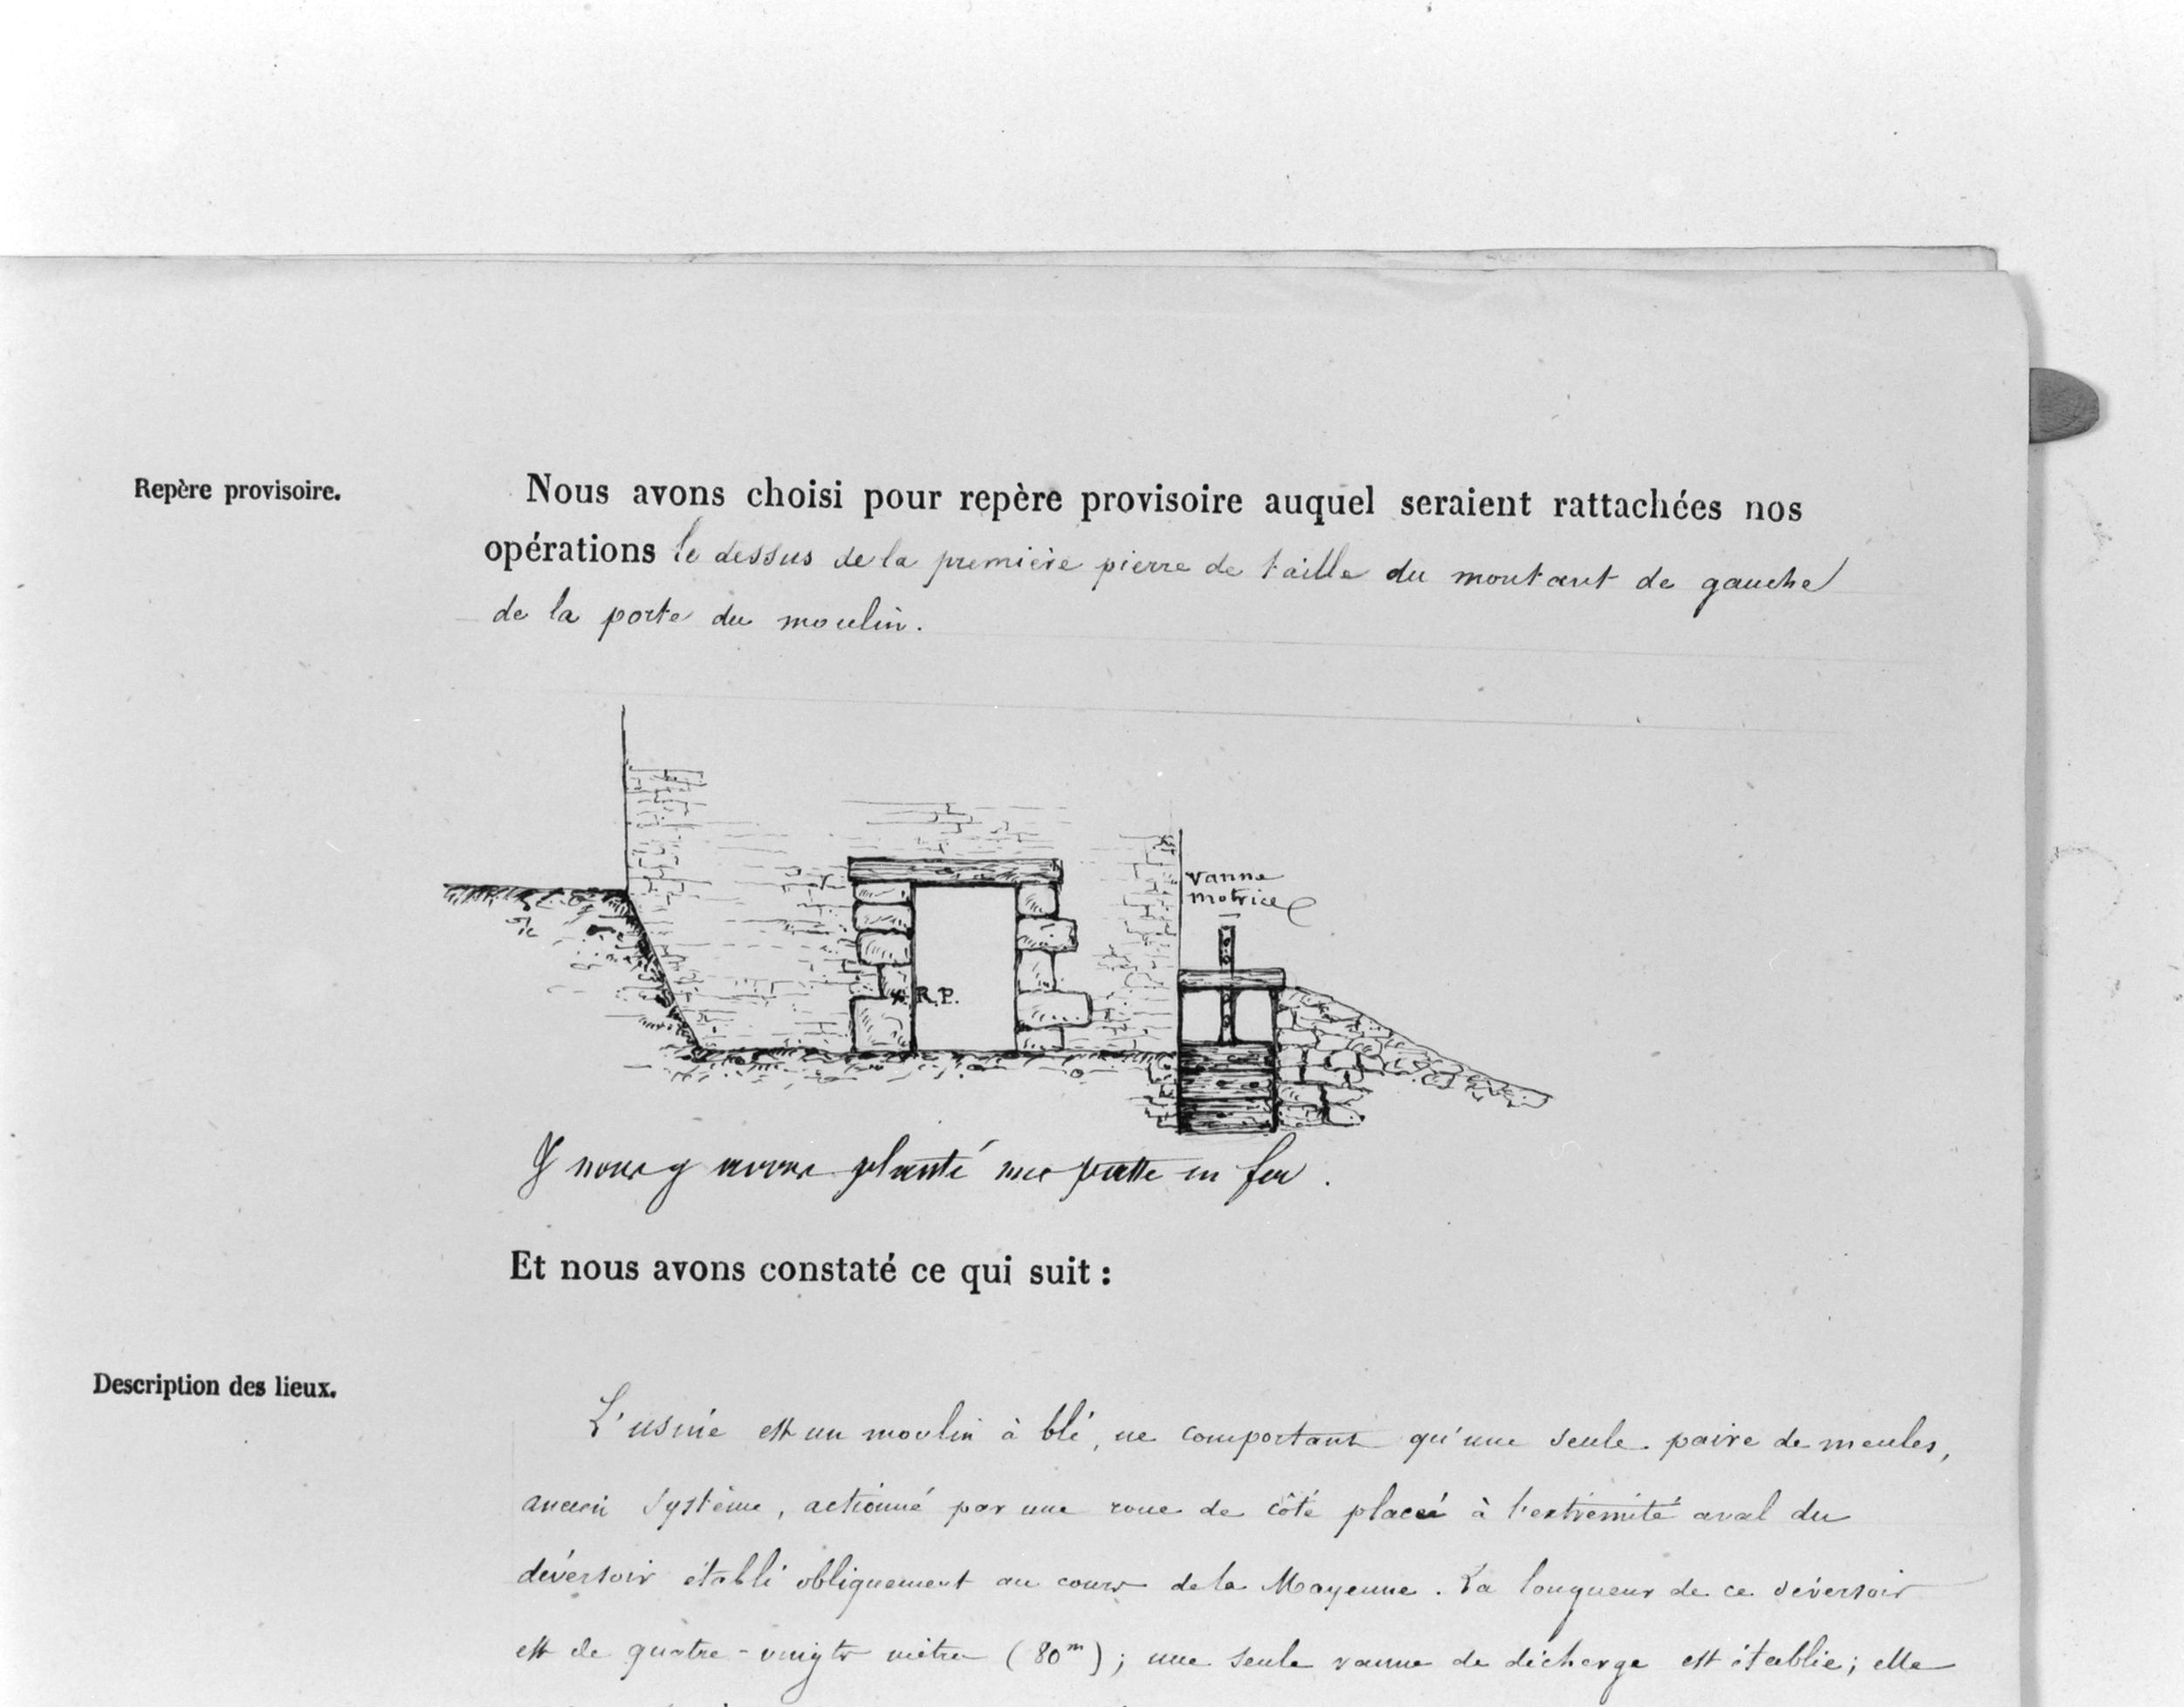 Repère provisoire.
Nous avons choisi pour repère provisoire auquel seraient rattachées nos
opérations le dessus de la première pierre de taille du montant de gauche
de la porte du moulin.
vanne
motrice
R.P.
nous y avons planté une patte en fer.
Et nous avons constaté ce qui suit :
Description des lieux.
L'usine est un moulin à blé, ne comportant qu'une seule paire de meules,
ancien système, actionné par une roue de côté placée à l'extrémité aval du
déversoir établi obliquement au cours de la Mayenne. La longueur de ce déversoir
est de quatre-vingts mètres (80m); une seule vanne de décharge est établie; elle